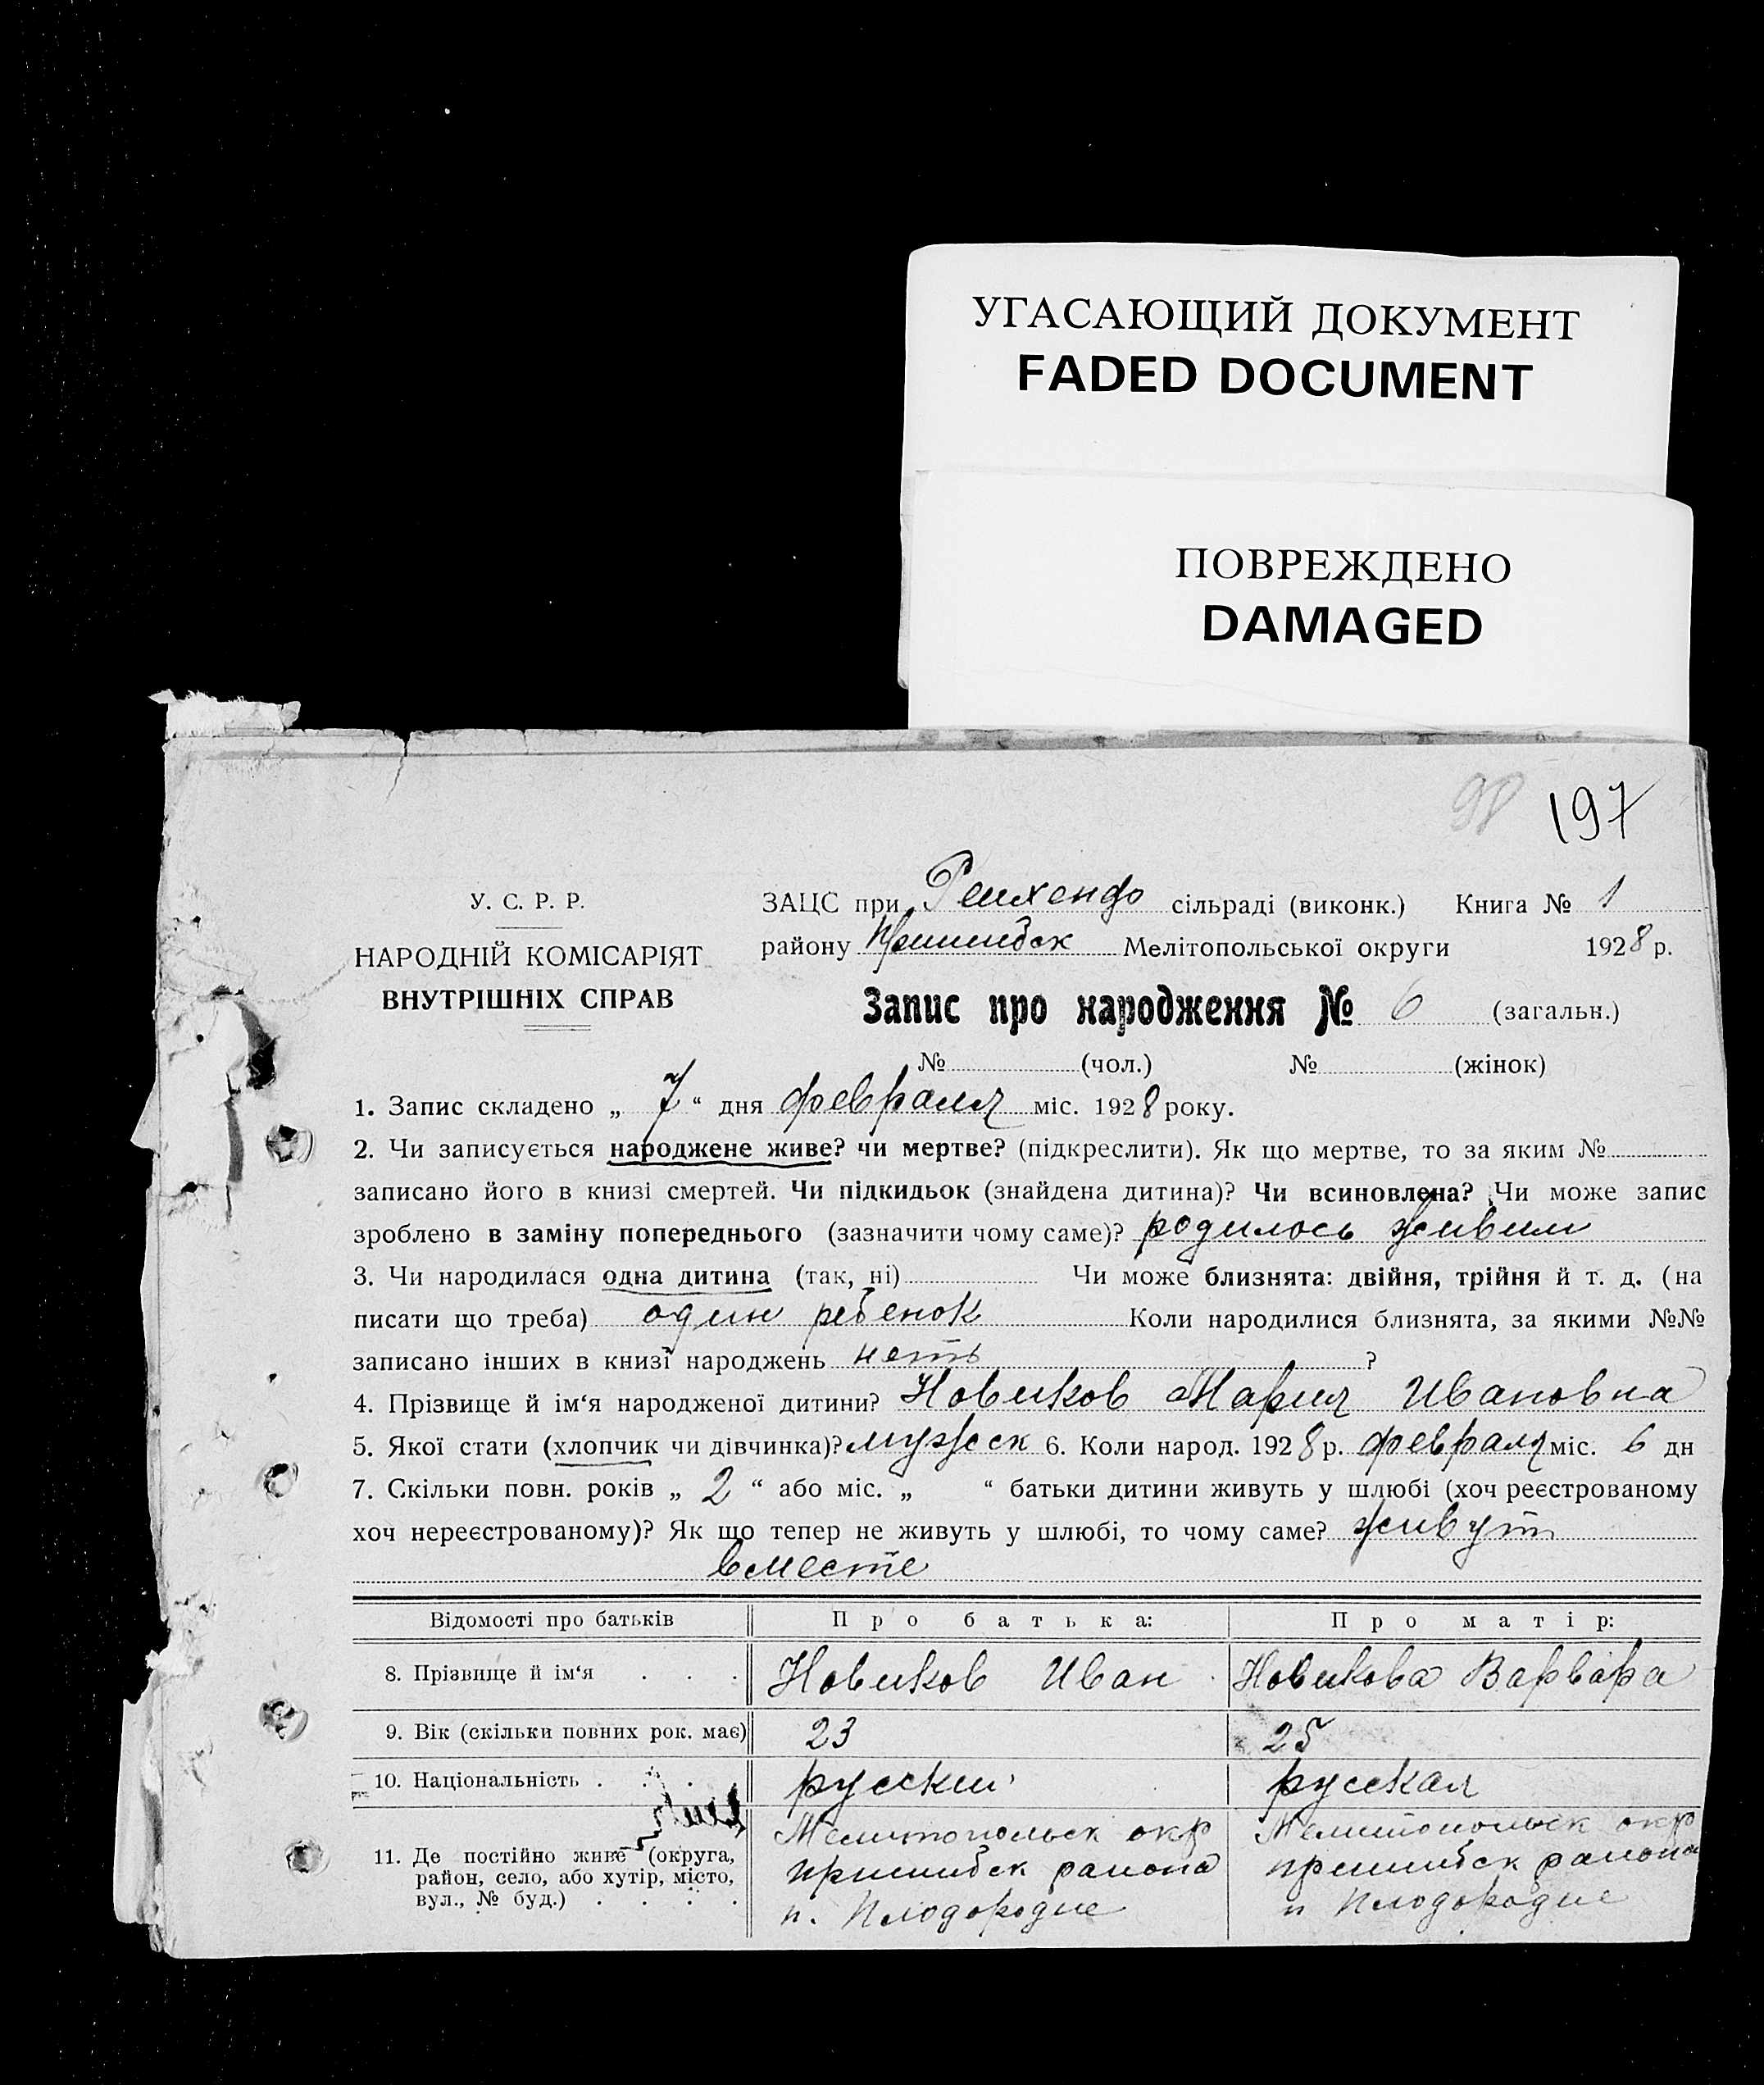 УГАСАЮЩИЙ ДОКУМЕНТ
FADED DOCUMENT
ПОВРЕЖДЕНО
DAMAGED
98 197
У. С. Р. Р.
НАРОДНІЙ КОМІСАРІЯТ
ВНУТРІШНІХ СПРАВ
ЗАЦС при Рейхенфе сільраді (виконк.) Книга № 1
району Пришибск Мелітопольської округи 1928 р.
Запис про народження № 6 (загальн.)
№ (чол.) № (жінок)
1. Запис складено „ 7 “ дня февраля міс. 1928 року.
2. Чи записується народжене живе? чи мертве? (підкреслити). Як що мертве, то за яким №
записано його в книзі смертей. Чи підкидьок (знайдена дитина)? Чи всиновлена? Чи може запис
зроблено в заміну попереднього (зазначити чому саме)? родилось живим
3. Чи народилася одна дитина (так, ні) Чи може близнята: двійня, трійня й т. д. (на
писати що треба) один ребенок Коли народилися близнята, за якими №№
записано інших в книзі народжень неть ?
4. Прізвище й ім‘я народженої дитини? Новиков Мария Ивановна
5. Якої стати (хлопчик чи дівчинка)? мужск 6. Коли народ. 1928 р. февраля міс. 6 дн
7. Скільки повн. років „ 2 “ або міс. „ “ батьки дитини живуть у шлюбі (хоч реєстрованому
хоч нереєстрованому)? Як що тепер не живуть у шлюбі, то чому саме? живут
вместе
Відомості про батьків Про батька: Про матір:
8. Прізвище й ім‘я . . . Новиков Иван Новикова Варвара
9. Вік (скільки повних рок. має) 23 25
10. Національність . . . . русский русская
11. Де постійно живе (округа,
район, село, або хутір, місто,
вул., № буд.) . . . .
Мелитопольск окр
пришибск района
п. Плодородие
Мелитопольск окр
пришибск района
п Плодородие